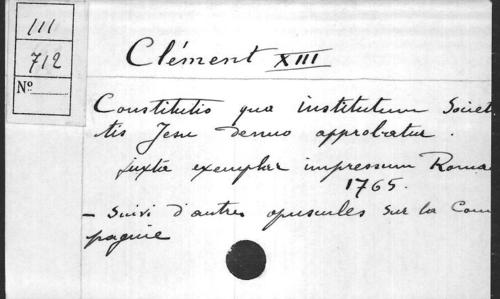 111
712
Nº
Clément XIII
Constitutio qua institutum Societ
tis Jesu denuo approbatur.
juxta exemplar impressum Roma
1765.
- Suivi d'autres opuscules sur la Com
pagnie